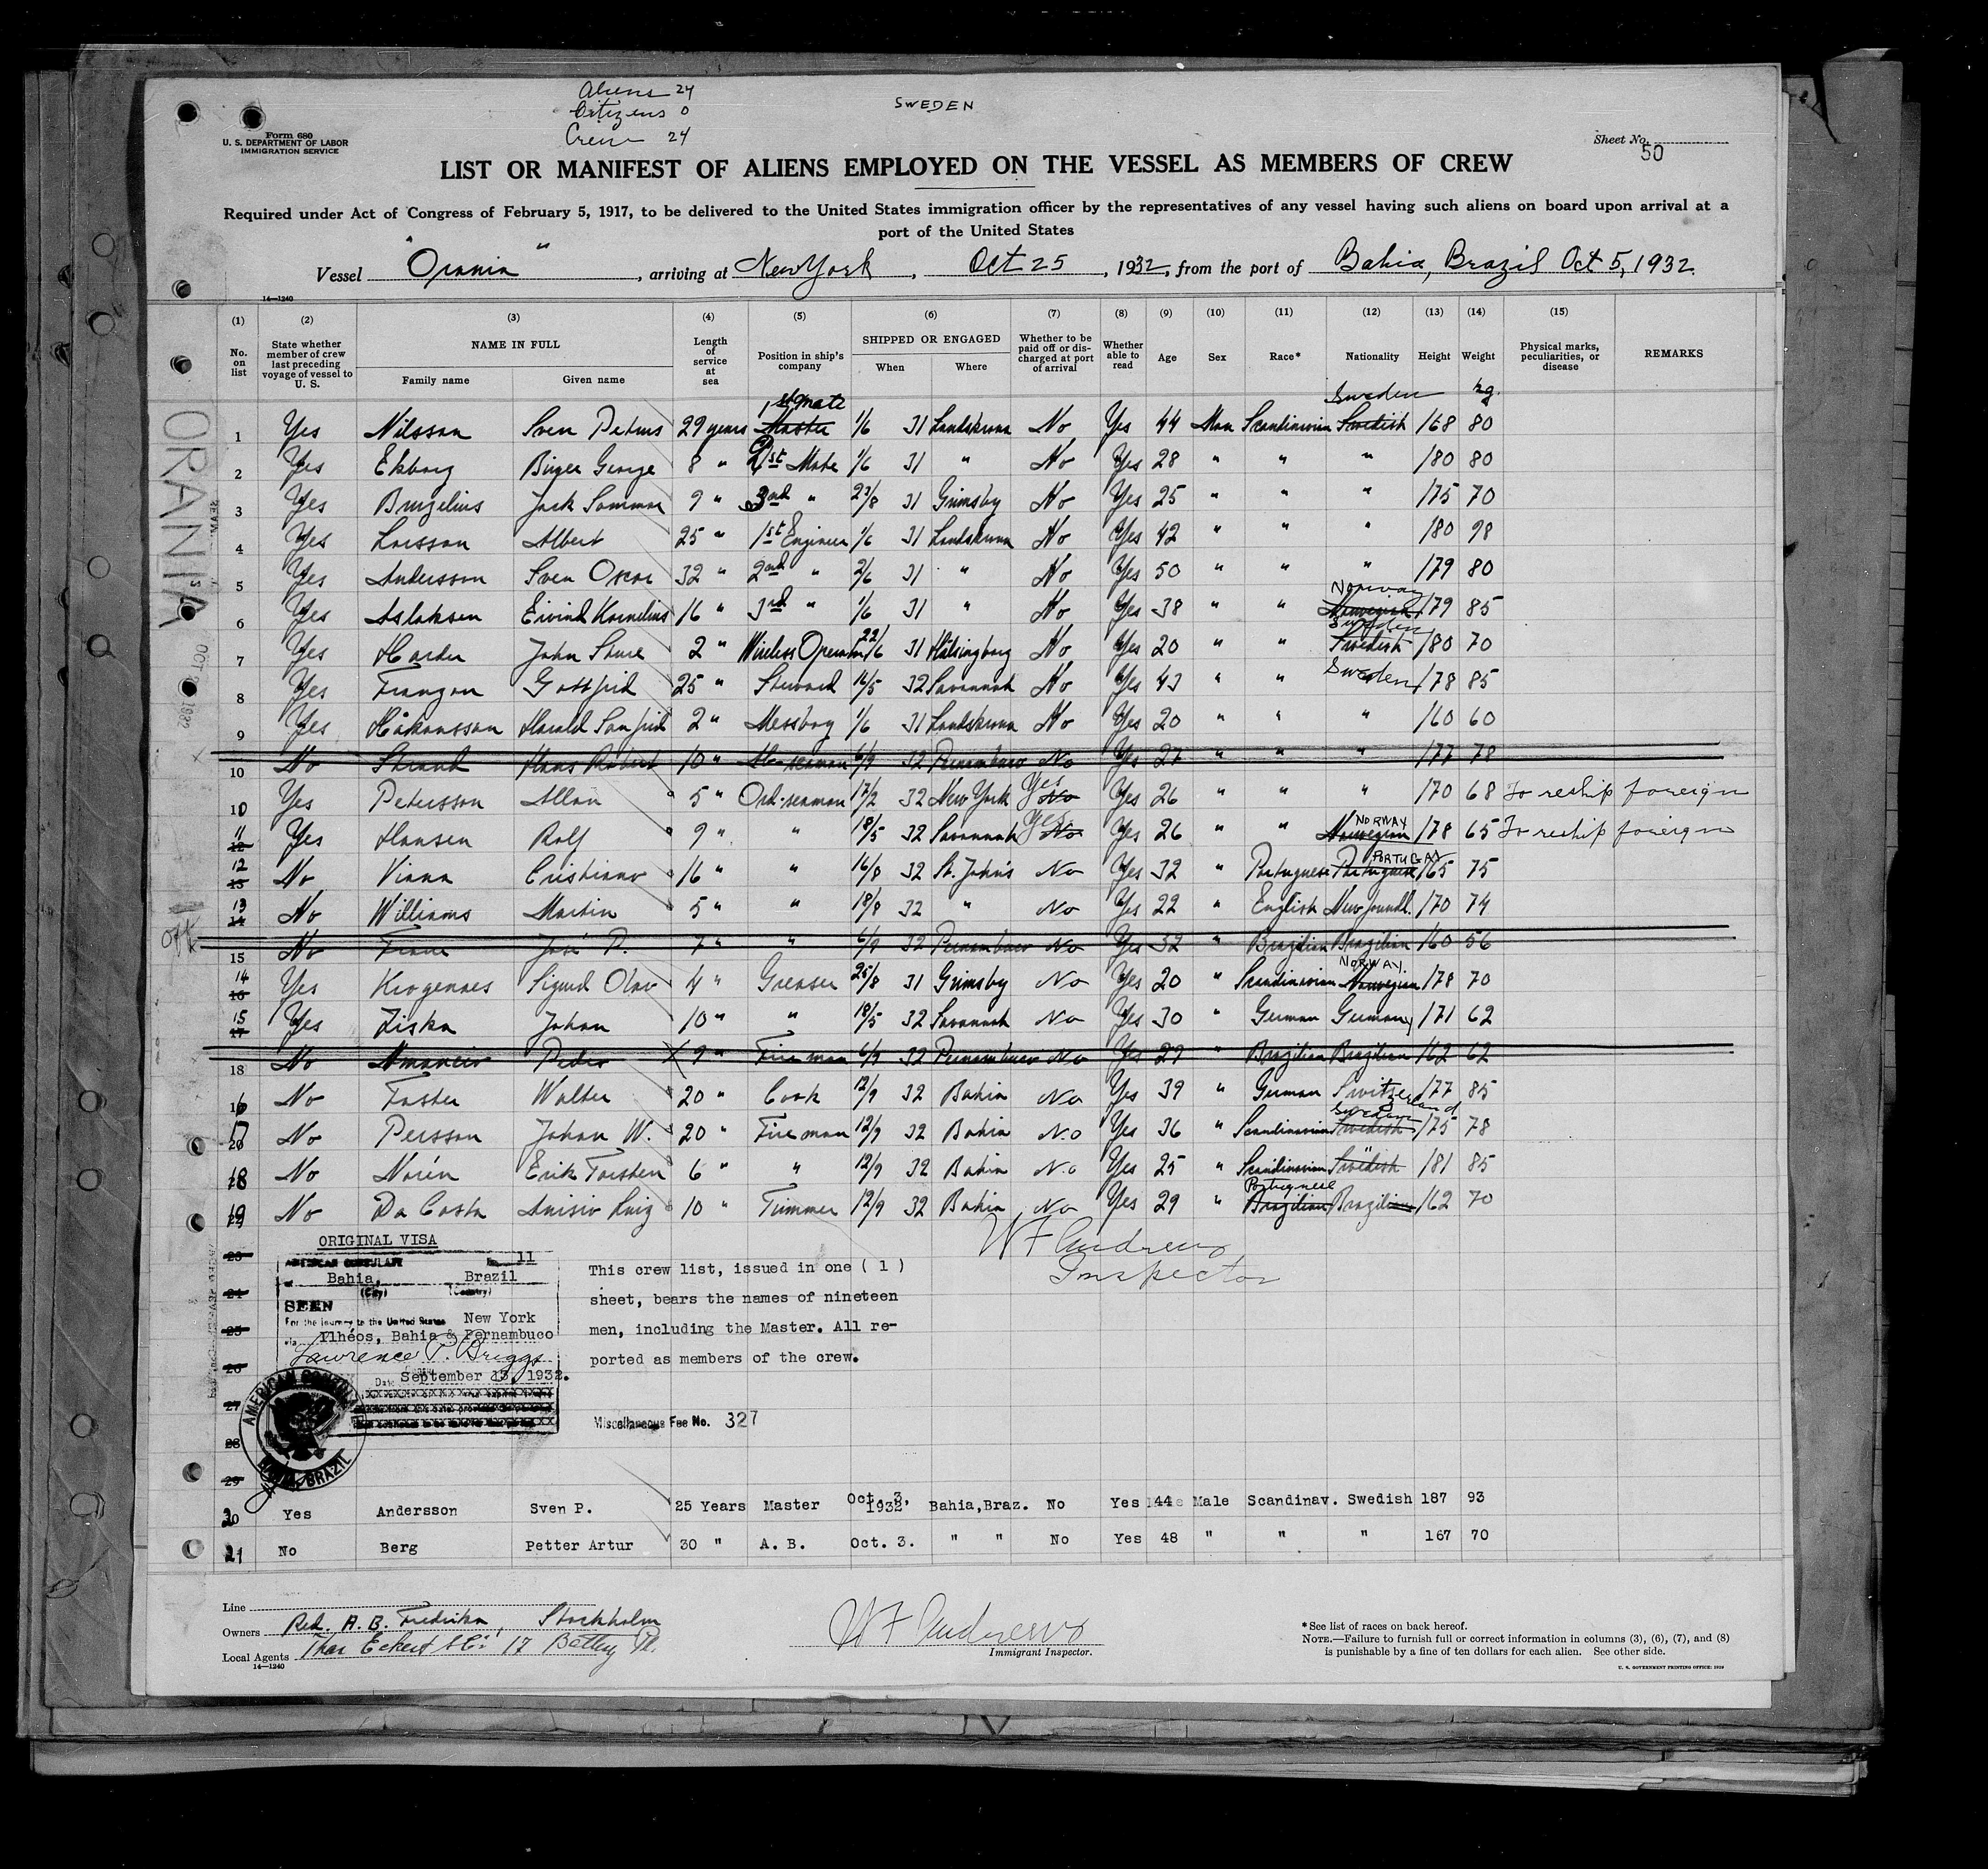 Aliens 24
Citizens 0
Crew 24
SWEDEN
Form 680
U. S. DEPARTMENT OF LABOR
IMMIGRATION SERVICE
Sheet No. 50
LIST OR MANIFEST OF ALIENS EMPLOYED ON THE VESSEL AS MEMBERS OF CREW
Required under Act of Congress of February 5, 1917, to be delivered to the United States immigration officer by the representatives of any vessel having such aliens on board upon arrival at a
port of the United States
Vessel "Orania", arriving at New York, Oct 25, 1932, from the port of Bahia, Brazil Oct 5, 1932.
14—1240
(1) (2) (3) (4) (5) (6) (7) (8) (9) (10) (11) (12) (13) (14) (15)
No. on list State whether member of crew last preceding voyage of vessel to U. S. NAME IN FULL Family name Given name Length of service at sea Position in ship's company SHIPPED OR ENGAGED When Where Whether to be paid off or discharged at port of arrival Whether able to read Age Sex Race* Nationality Height Weight Physical marks, peculiarities, or disease REMARKS
1st mate Sweden kg.
1 Yes Nilsson Sven Petrus 29 years Master 1/6 31 Landskrona No Yes 44 Man Scandinavian Swedish 168 80
2 Yes Ekborg Birger George 8 " 1st Mate 1/6 31 " No Yes 28 " " " 180 80
3 Yes Jack 9 " 3rd " 23/8 31 Grimsby No Yes 25 " " " 175 70
4 Yes Larsson Albert 25 " 1st Engineer 1/6 31 Landskrona No Yes 42 " " " 180 98
5 Yes Andersson Sven Oscar 32 " 2nd " 2/6 31 " No Yes 50 " " " 179 80
Norway
6 Yes Aslaksen Eivind Kornelius 16 " 3rd " 1/6 31 " No Yes 38 " " Norwegian 179 85
Sweden
7 Yes Harder John Sture 2 " Wireless Operator 22/6 31 Hälsingborg No Yes 20 " " Swedish 180 70
Sweden
8 Yes Franzon Gottfrid 25 " Steward 16/5 32 Savannah No Yes 43 " " 178 85
9 Yes Håkansson Harald Sanfrid 2 " Messboy 1/6 31 Landskrona No Yes 20 " " " 160 60
10 No Strand Hans Robert 10 " Ab-seaman 6/9 32 Pernambuco No Yes 27 " " " 177 78
10 Yes Petersson Allan 5 " Ord-seaman 17/2 32 New York Yes No Yes 26 " " " 170 68 To reship foreign
11 12 Yes Hansen Rolf 9 " " 18/5 32 Savannah Yes No Yes 26 " " NORWAY Norwegian 178 65 To reship foreign
12 13 No Viana Cristiano 16 " " 16/8 32 St. John's No Yes 32 " Portuguese PORTUGAL Portuguese 165 75
13 14 No Williams Martin 5 " " 18/8 32 " No Yes 22 " English Newfoundl. 170 74
15 No José P. 7 " " 6/9 32 Pernambuco No Yes 32 " Brazilian Brazilian 160 56
14 16 Yes Krogenaes Sigurd Olav 4 " Greaser 25/8 31 Grimsby No Yes 20 " Scandinavian NORWAY. Norwegian 178 70
15 17 Yes Ziska Johan 10 " " 18/5 32 Savannah No Yes 30 " German Germany 171 62
18 No Amancio Pedro X 9 " Fireman 6/9 32 Pernambuco No Yes 29 " Brazilian Brazilian 162 62
16 No Walter 20 " Cook 12/9 32 Bahia No Yes 39 " German Switzerland 177 85
17 20 No Persson Johan W. 20 " Fireman 12/9 32 Bahia No Yes 36 " Scandinavian Sweden Swedish 175 78
18 No Norén Erik Torsten 6 " " 12/9 32 Bahia No Yes 25 " Scandinavian Swedish 181 85
19 22 No Da Costa Anisio Luiz 10 " Trimmer 12/9 32 Bahia No Yes 29 " Portuguese Brazilian Brazilian 162 70
W F Andrews
Inspector
23
24
25
26
27
28
29
ORIGINAL VISA
AMERICAN CONSULATE No. 11
at Bahia, Brazil
(City) (Country)
SEEN
For the journey to the United States New York
via Ilhéos, Bahia & Pernambuco
Lawrence P. Briggs
Date September 13, 1932.
AMERICAN CONSULATE
BAHIA, BRAZIL
This crew list, issued in one ( 1 )
sheet, bears the names of nineteen
men, including the Master. All re-
ported as members of the crew.
Miscellaneous Fee No. 327
20 Yes Andersson Sven P. 25 Years Master Oct. 3, 1932 Bahia,Braz. No Yes 44 Male Scandinav. Swedish 187 93
21 No Berg Petter Artur 30 " A. B. Oct. 3. " " No Yes 48 " " " 167 70
Line
Owners Red. A. B. Fredrika, Stockholm
Local Agents Thor Eckert & Co. 17 Battery Pl.
14—1240
W F Andrews
Immigrant Inspector.
*See list of races on back hereof.
NOTE.—Failure to furnish full or correct information in columns (3), (6), (7), and (8)
is punishable by a fine of ten dollars for each alien. See other side.
U. S. GOVERNMENT PRINTING OFFICE: 1929
ORANIA
OCT 1932